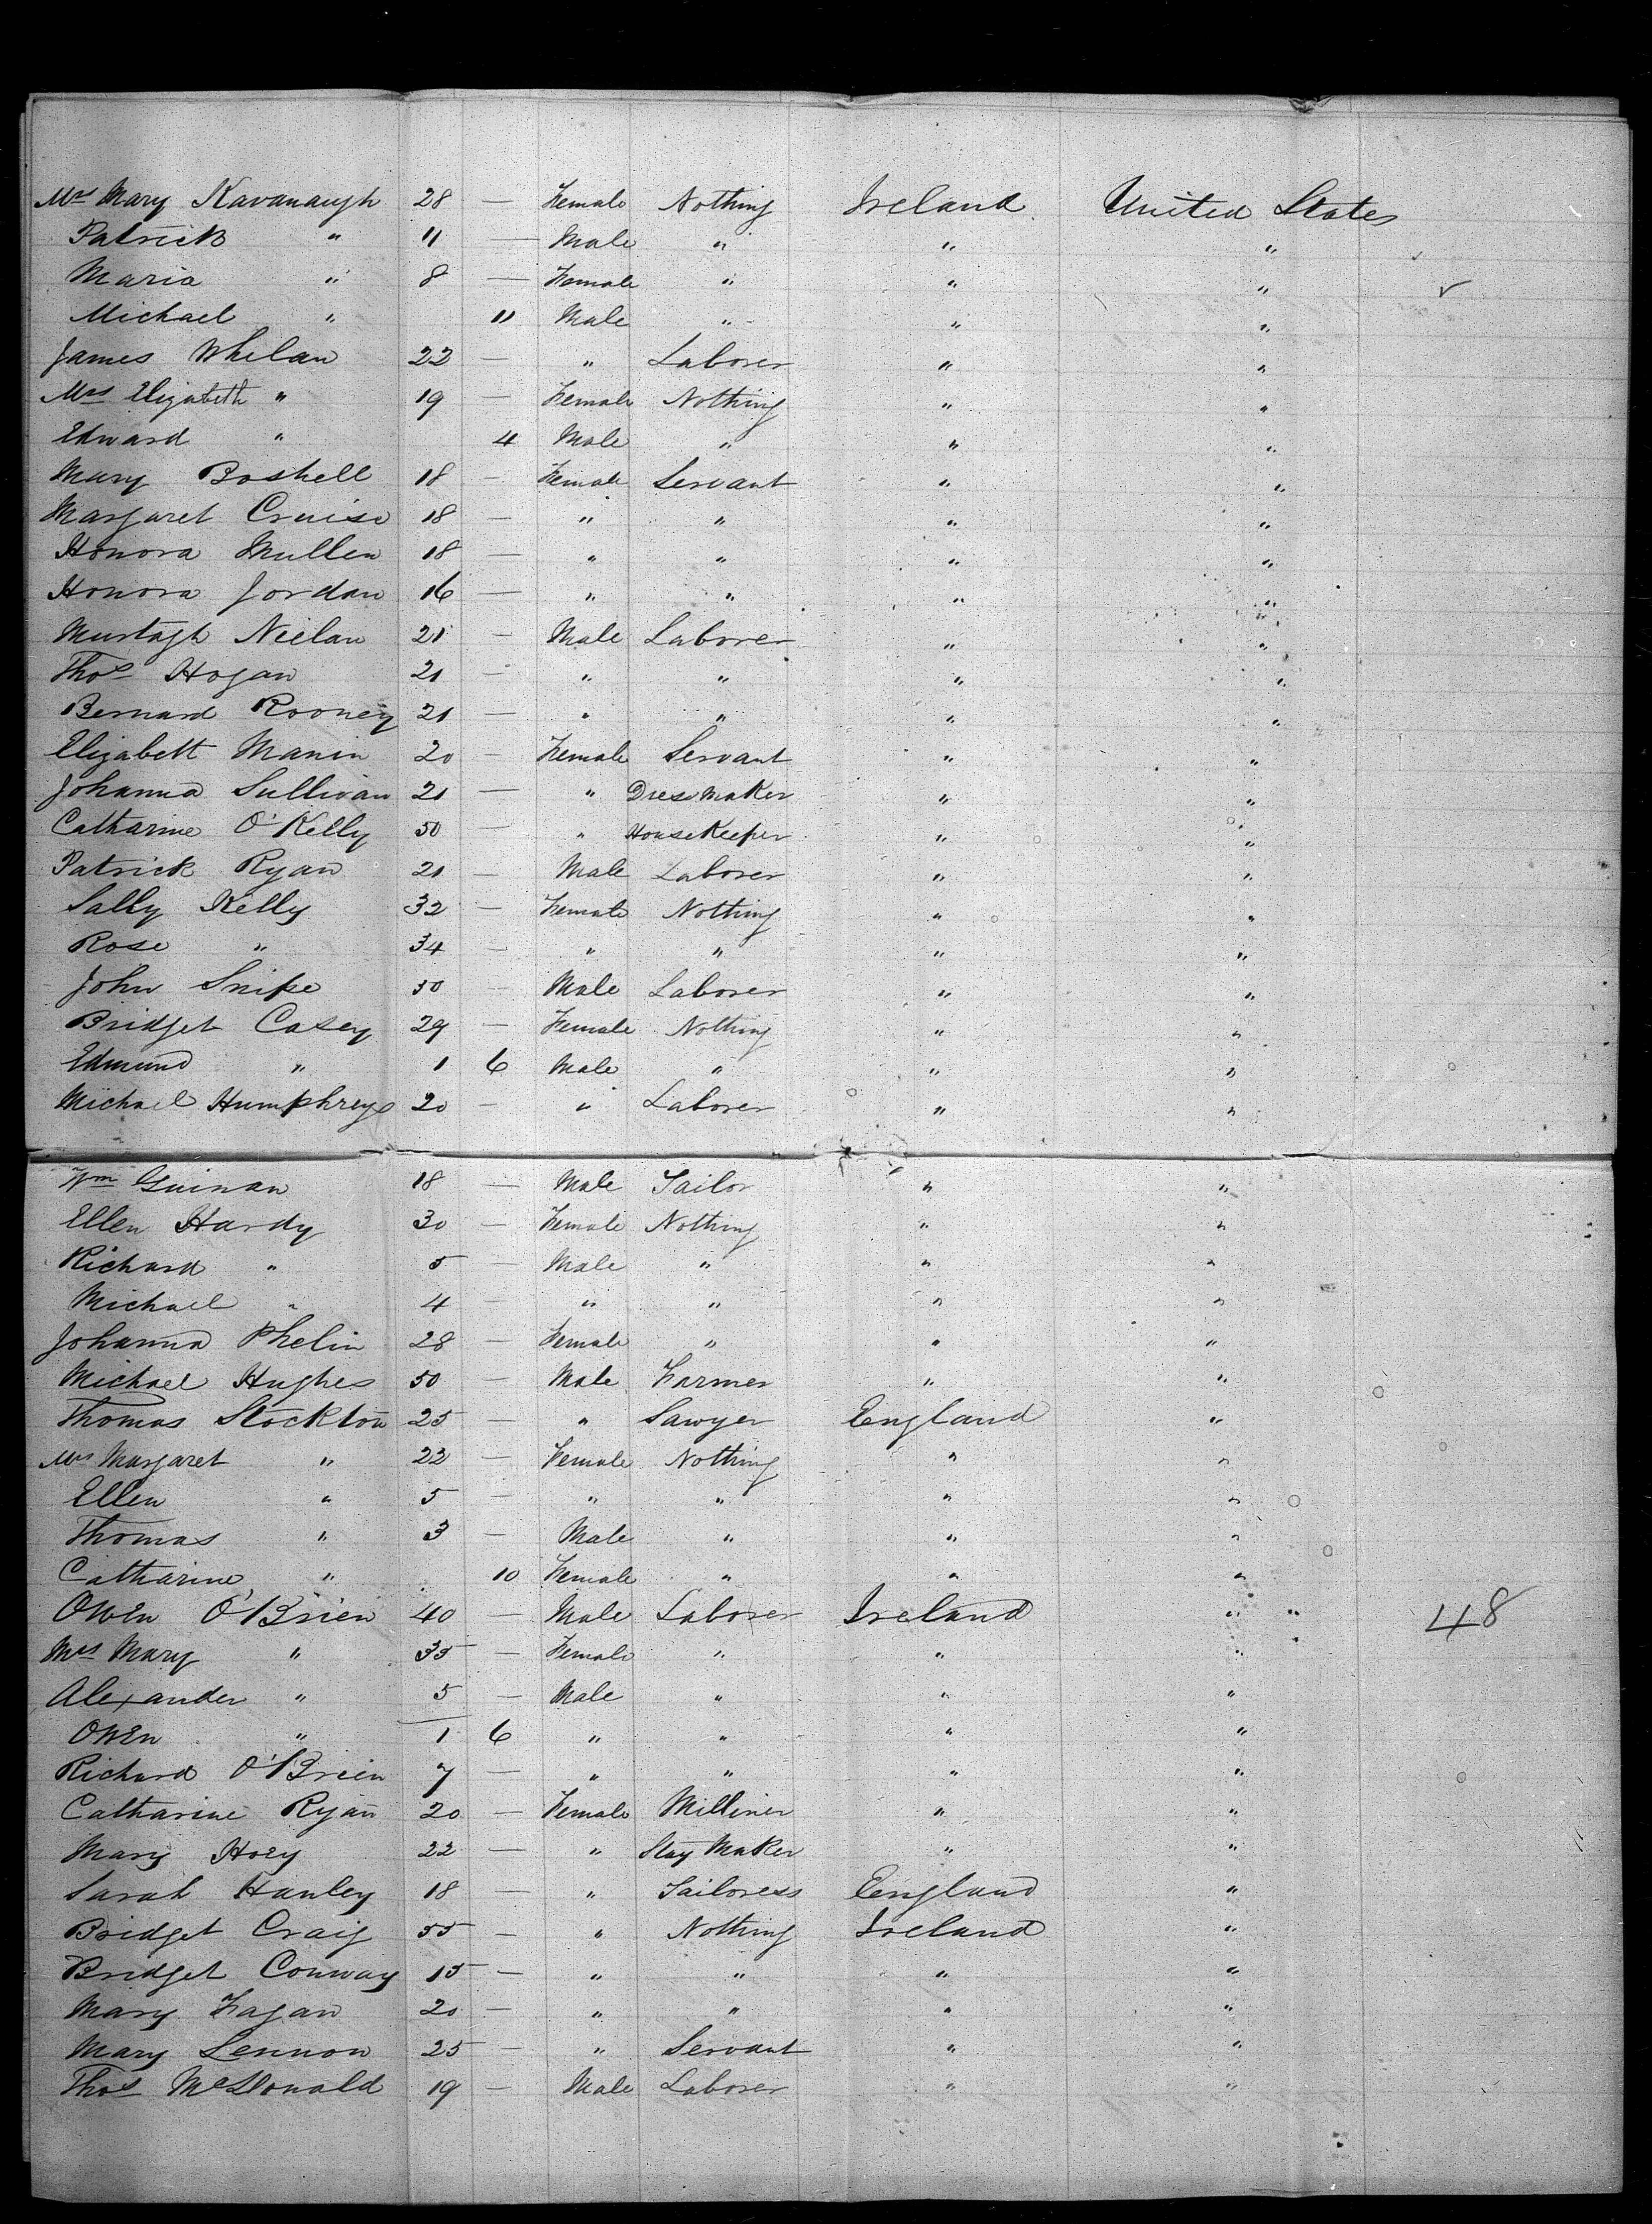 Mrs Mary Kavanaugh 28 — Female Nothing Ireland United States
Patrick " 11 — Male " " "
Maria " 8 — Female " " "
Michael " 11 Male " " "
James Whelan 22 — " Laborer " "
Mrs Elizabeth " 19 — Female Nothing " "
Edward " 4 Male " " "
Mary Boshell 18 — Female Servant " "
Margaret Cruise 18 — " " " "
Honora Mullen 18 — " " " "
Honora Jordan 16 — " " " "
Murtagh Nielan 21 — Male Laborer " "
Thos Hogan 21 — " " " "
Bernard Rooney 21 — " " " "
Elizabett Manin 20 — Female Servant " "
Johanna Sullivan 21 — " Dress Maker " "
Catharine O'Kelly 50 — " HouseKeeper " "
Patrick Ryan 21 — Male Laborer " "
Sally Kelly 32 — Female Nothing " "
Rose " 34 — " " " "
John Snipe 50 — Male Laborer " "
Bridget Casey 29 — Female Nothing " "
Edmund " 1 6 Male " " "
Michael Humphreys 20 — " Laborer " "
Wm Guinan 18 — Male Tailor " "
Ellen Hardy 30 — Female Nothing " "
Richard " 5 — Male " " "
Michael " 4 — " " " "
Johanna Phelin 28 — Female " " "
Michael Hughes 50 — Male Farmer " "
Thomas Stockton 25 — " Sawyer England "
Mrs Margaret " 22 — Female Nothing " "
Ellen " 5 — " " " "
Thomas " 3 — Male " " "
Catharine " 10 Female " " "
Owen O'Brien 40 — Male Laborer Ireland " " 48
Mrs Mary " 35 — Female " " "
Alexander " 5 — Male " " "
Owen " 1 6 " " " "
Richard O'Brien 7 — " " " "
Catharine Ryan 20 — Female Milliner " "
Mary Hoey 22 — " Stay Maker " "
Sarah Hanley 18 — " Tailoress England "
Bridget Craig 55 — " Nothing Ireland "
Bridget Conway 15 — " " " "
Mary Fagan 20 — " " " "
Mary Lennon 25 — " Servant " "
Thos McDonald 19 — Male Laborer " "